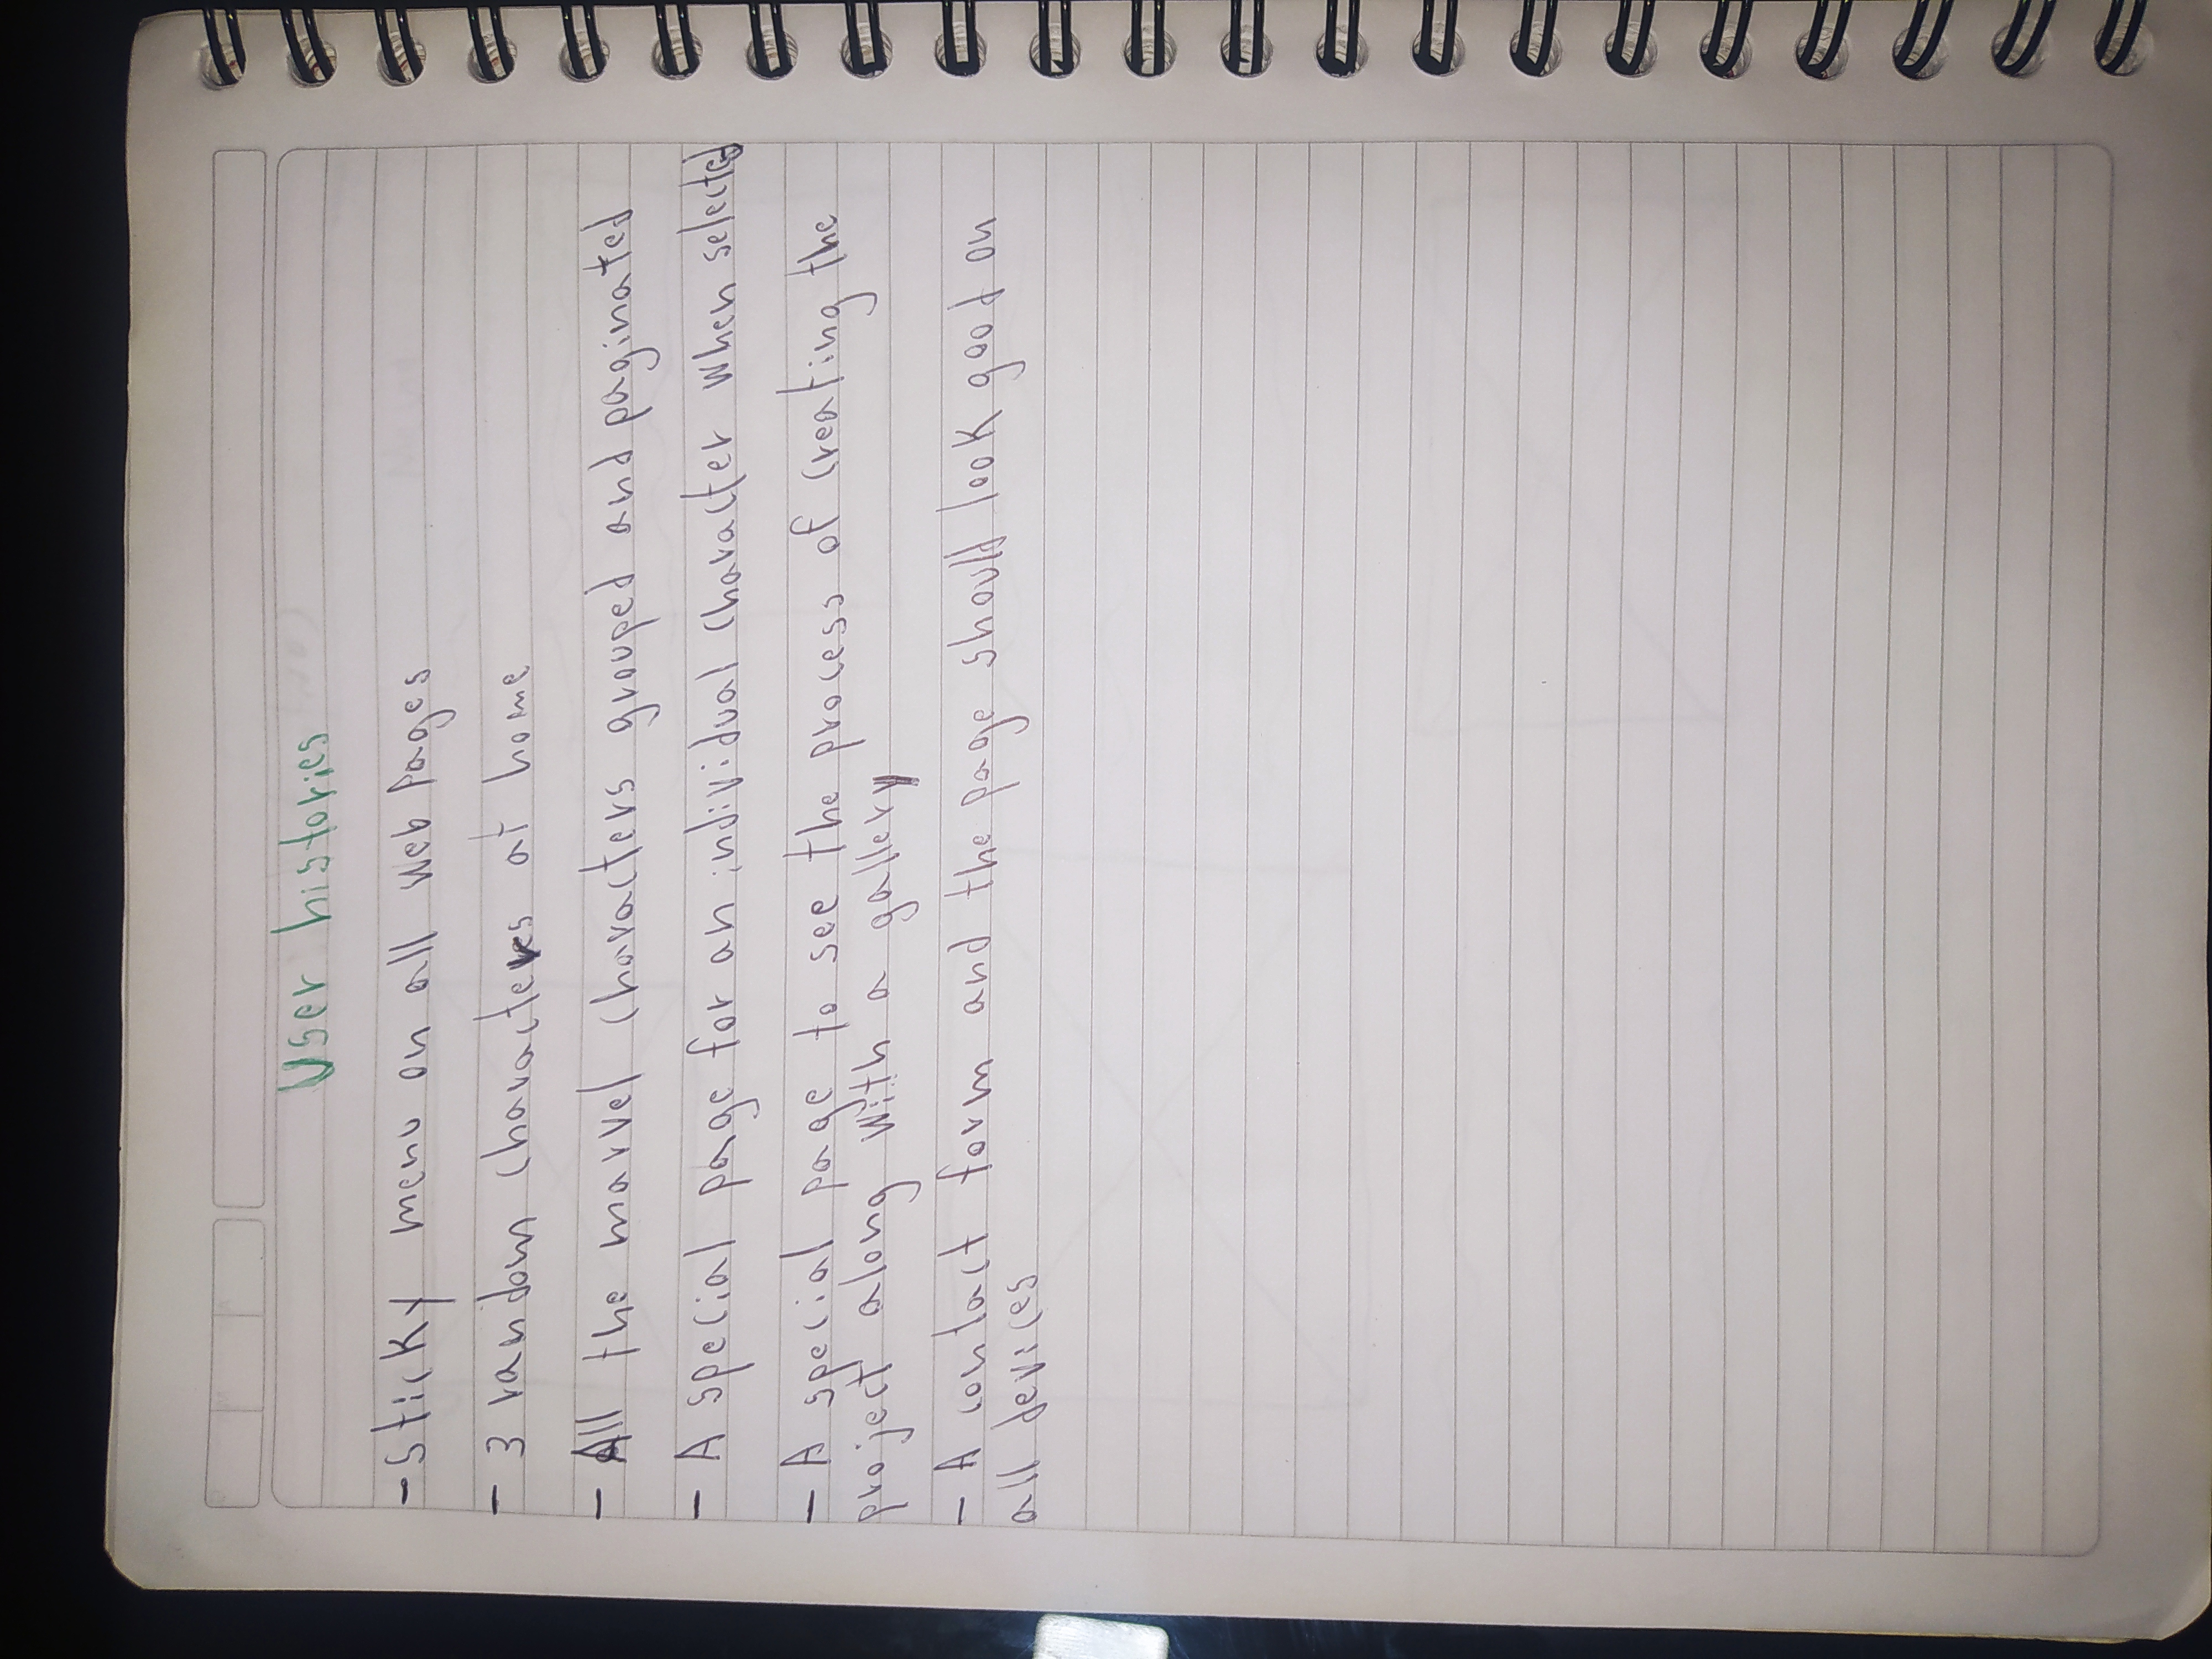 User histories
- Sticky menu on all web Pages
- 3 random characters at home
- All the marvel characters grouped and paginated
- A special page for an individual character when selected
- A special page to see the process of creating the
project along with a gallery
- A contact form and the page should look good on
all devices